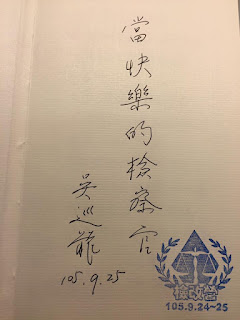 當快樂的檢察官
吳巡龍
105.9.25
檢改營
105.9.24~25